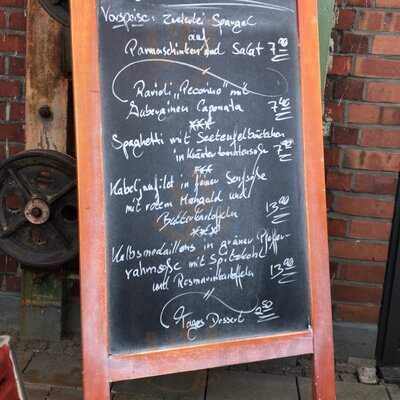 Vorspeise: Zweierlei Spargel
auf
Parmaschinken und Salat 7,90
Ravioli "Pecorino" mit
Auberginen Caponata 7,40
***
Spaghetti mit Seeteufelbäckchen
in Kräutertomatensoße 7,90
***
Kabeljaufilet in feiner Senfsoße
mit rotem Mangold und
Butterkartoffeln 13,90
***
Kalbsmedaillons in grüner Pfeffer-
rahmsoße mit Spitzkohl
und Rosmarinkartoffeln 13,90
Tages Dessert 2,50